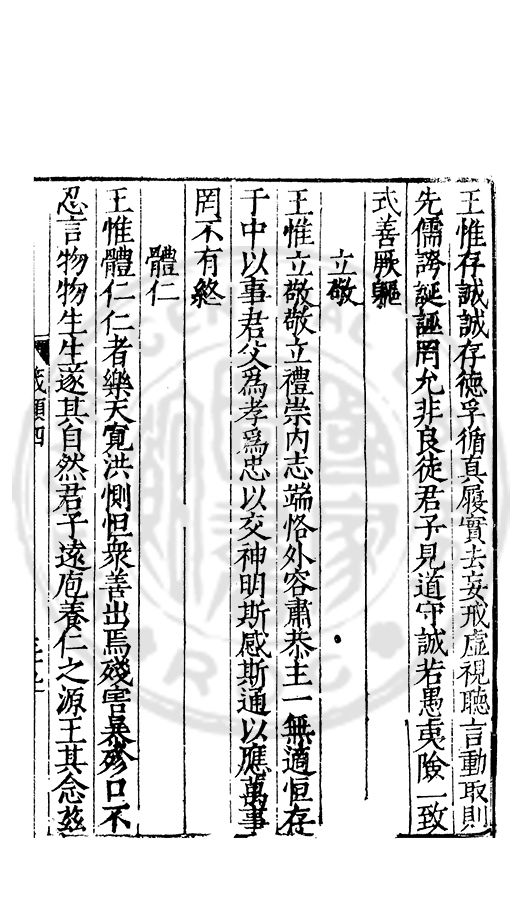 王惟存誠誠存德孚循真履實去妄戒虛視聽言動取則
先儒謗誕誣罔允非良徒君子見道守誠若愚夷險一致
式善厥軀
立敬
王惟立敬敬立禮崇內志端恪外容肅恭主一無適恒存
于中以事君父為孝為忠以交神明斯感斯通以應萬事
罔不有終
體仁
王惟體仁仁者樂天寬洪惻怛衆善出焉殘害暴殄口不
忍言物物生生遂其自然君子遠庖養仁之源王其念玆
箴類四